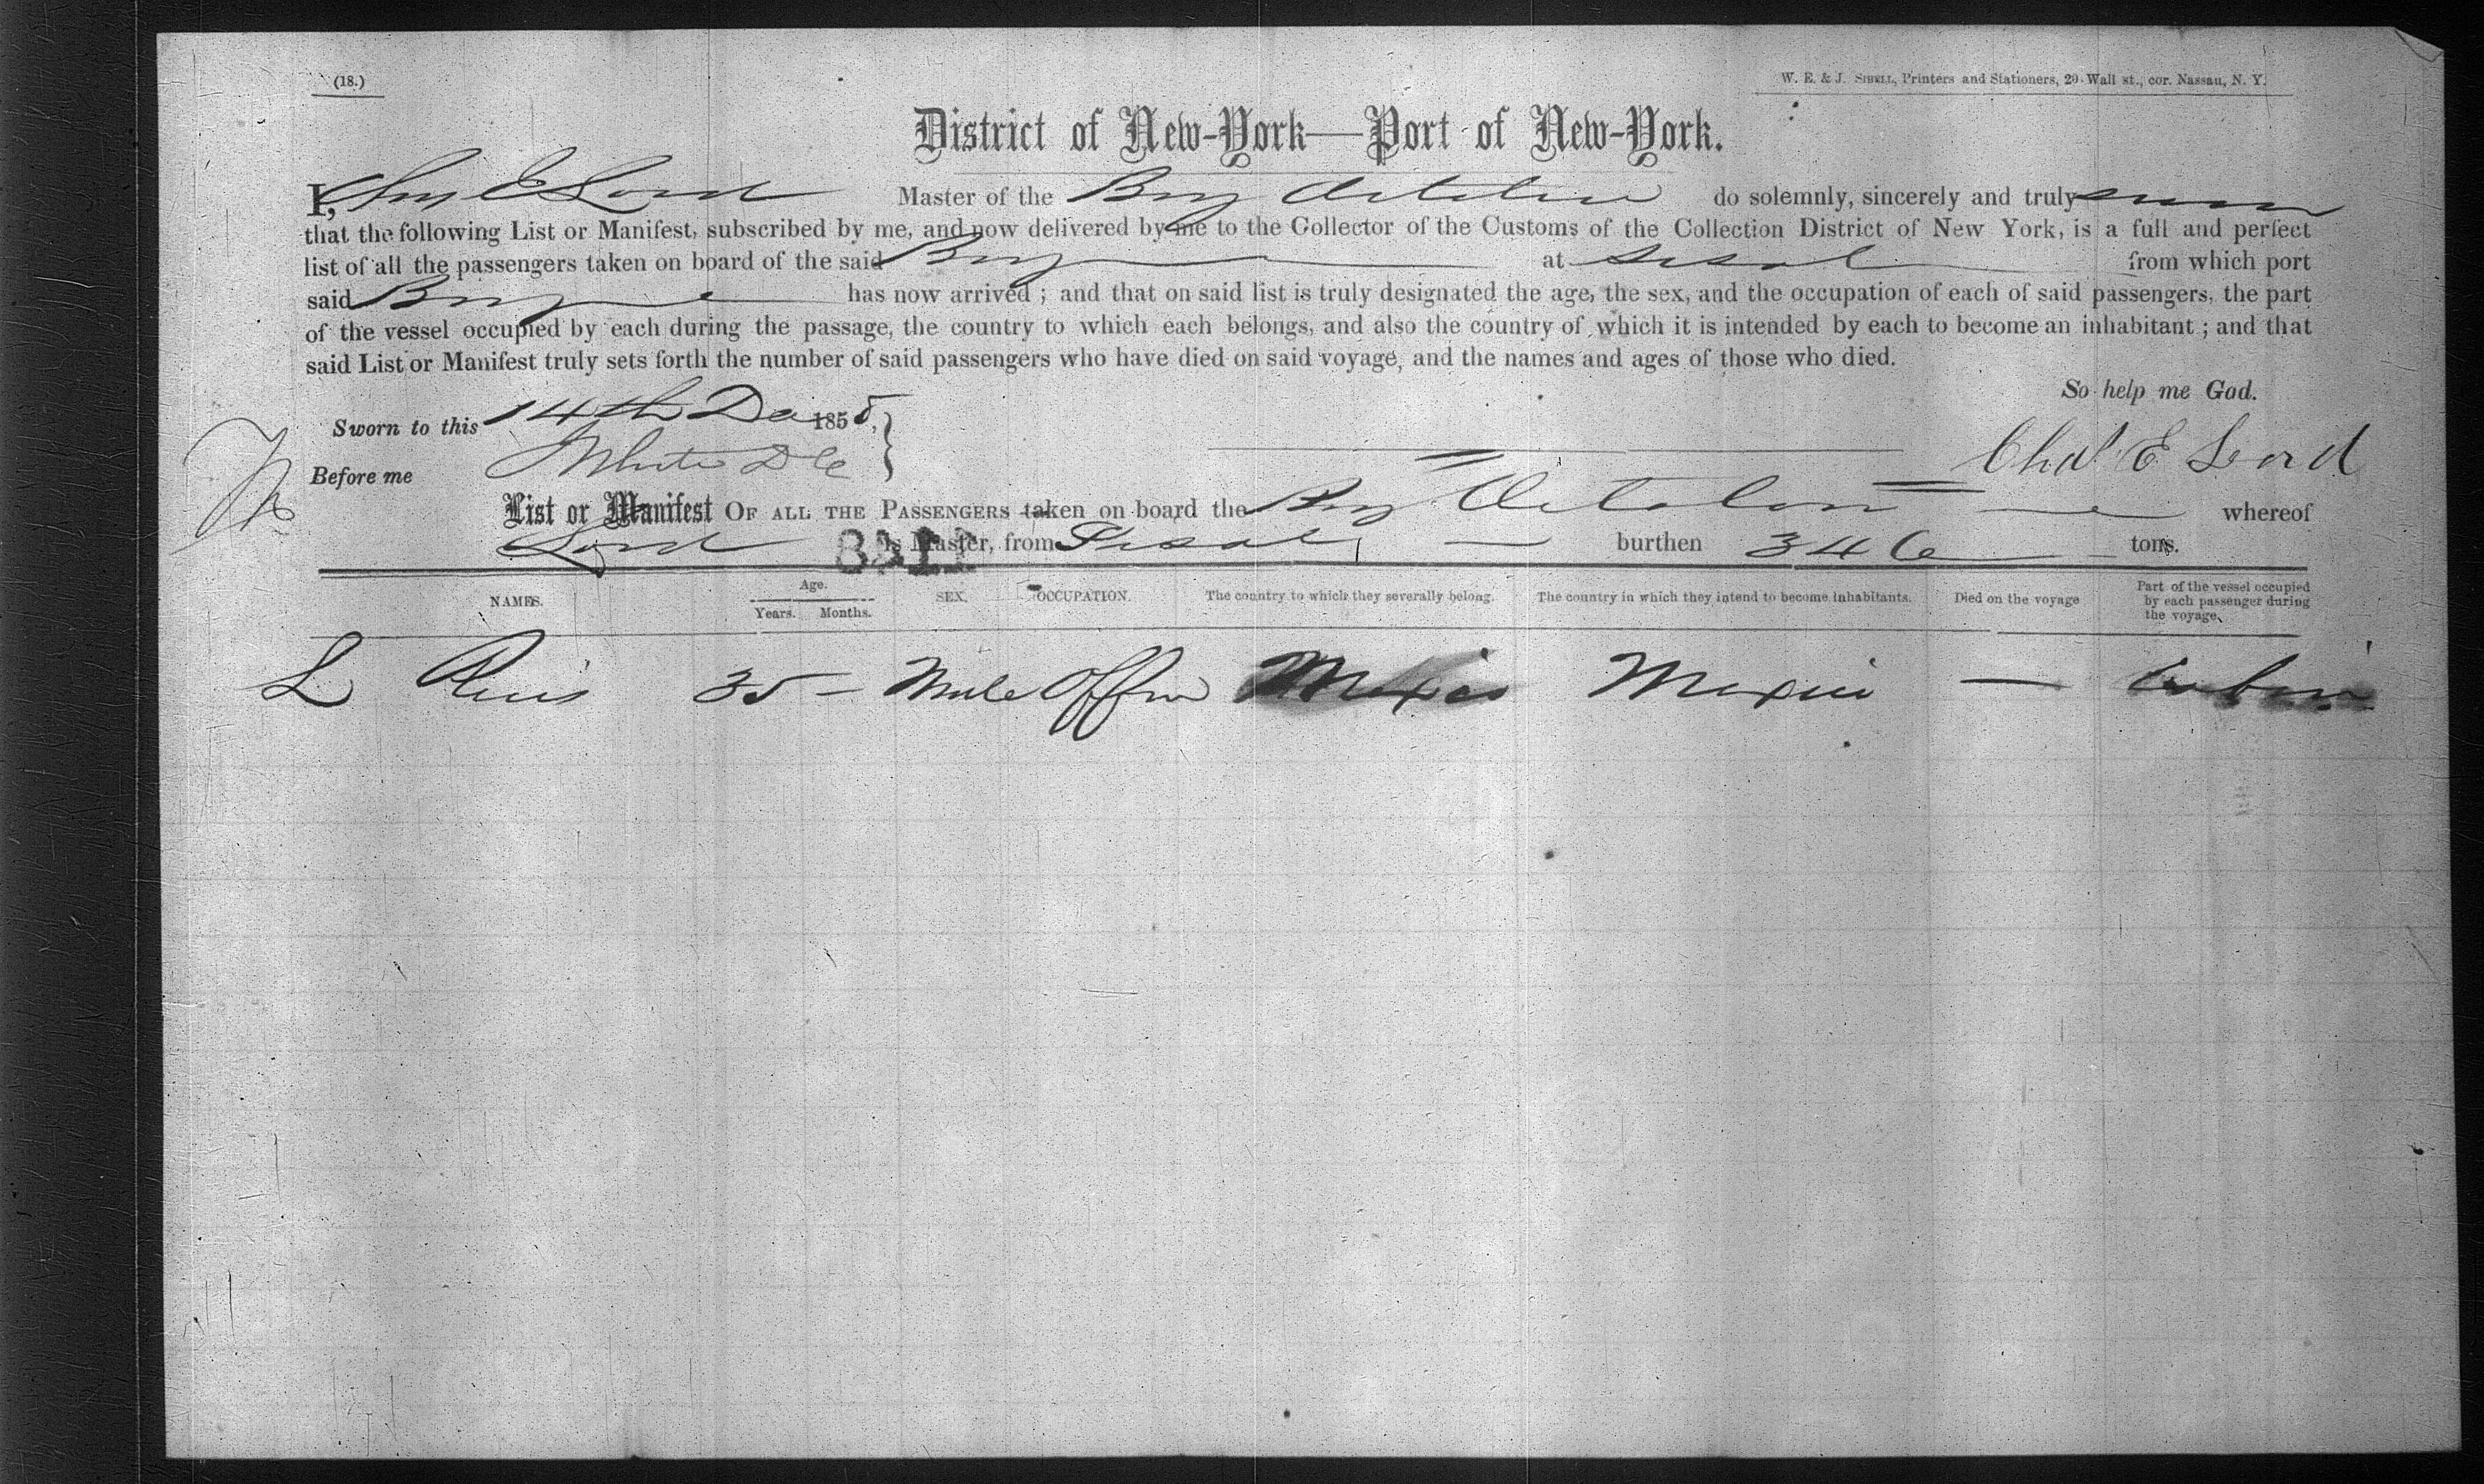 (18.)
W. E. & J. SIBELL, Printers and Stationers, 29 Wall st., cor. Nassau, N. Y.
District of New-York—Port of New-York.
I, Chas E Lord Master of the Brig do solemnly, sincerely and truly swear
that the following List or Manifest, subscribed by me, and now delivered by me to the Collector of the Customs of the Collection District of New York, is a full and perfect
list of all the passengers taken on board of the said Brig at Sisal from which port
said Brig has now arrived ; and that on said list is truly designated the age, the sex, and the occupation of each of said passengers, the part
of the vessel occupied by each during the passage, the country to which each belongs, and also the country of which it is intended by each to become an inhabitant ; and that
said List or Manifest truly sets forth the number of said passengers who have died on said voyage, and the names and ages of those who died.
So help me God.
Sworn to this 14th 1855, }
Chas E Lord
Before me White
List or Manifest OF ALL THE PASSENGERS taken on board the Brig whereof
Lord is Master, from Sisal burthen 346 tons.
NAMES. Age. Years. Months. SEX. OCCUPATION. The country to which they severally belong. The country in which they intend to become inhabitants. Died on the voyage Part of the vessel occupied by each passenger during the voyage.
L 35 — Male Mexico Mexico — Cabin